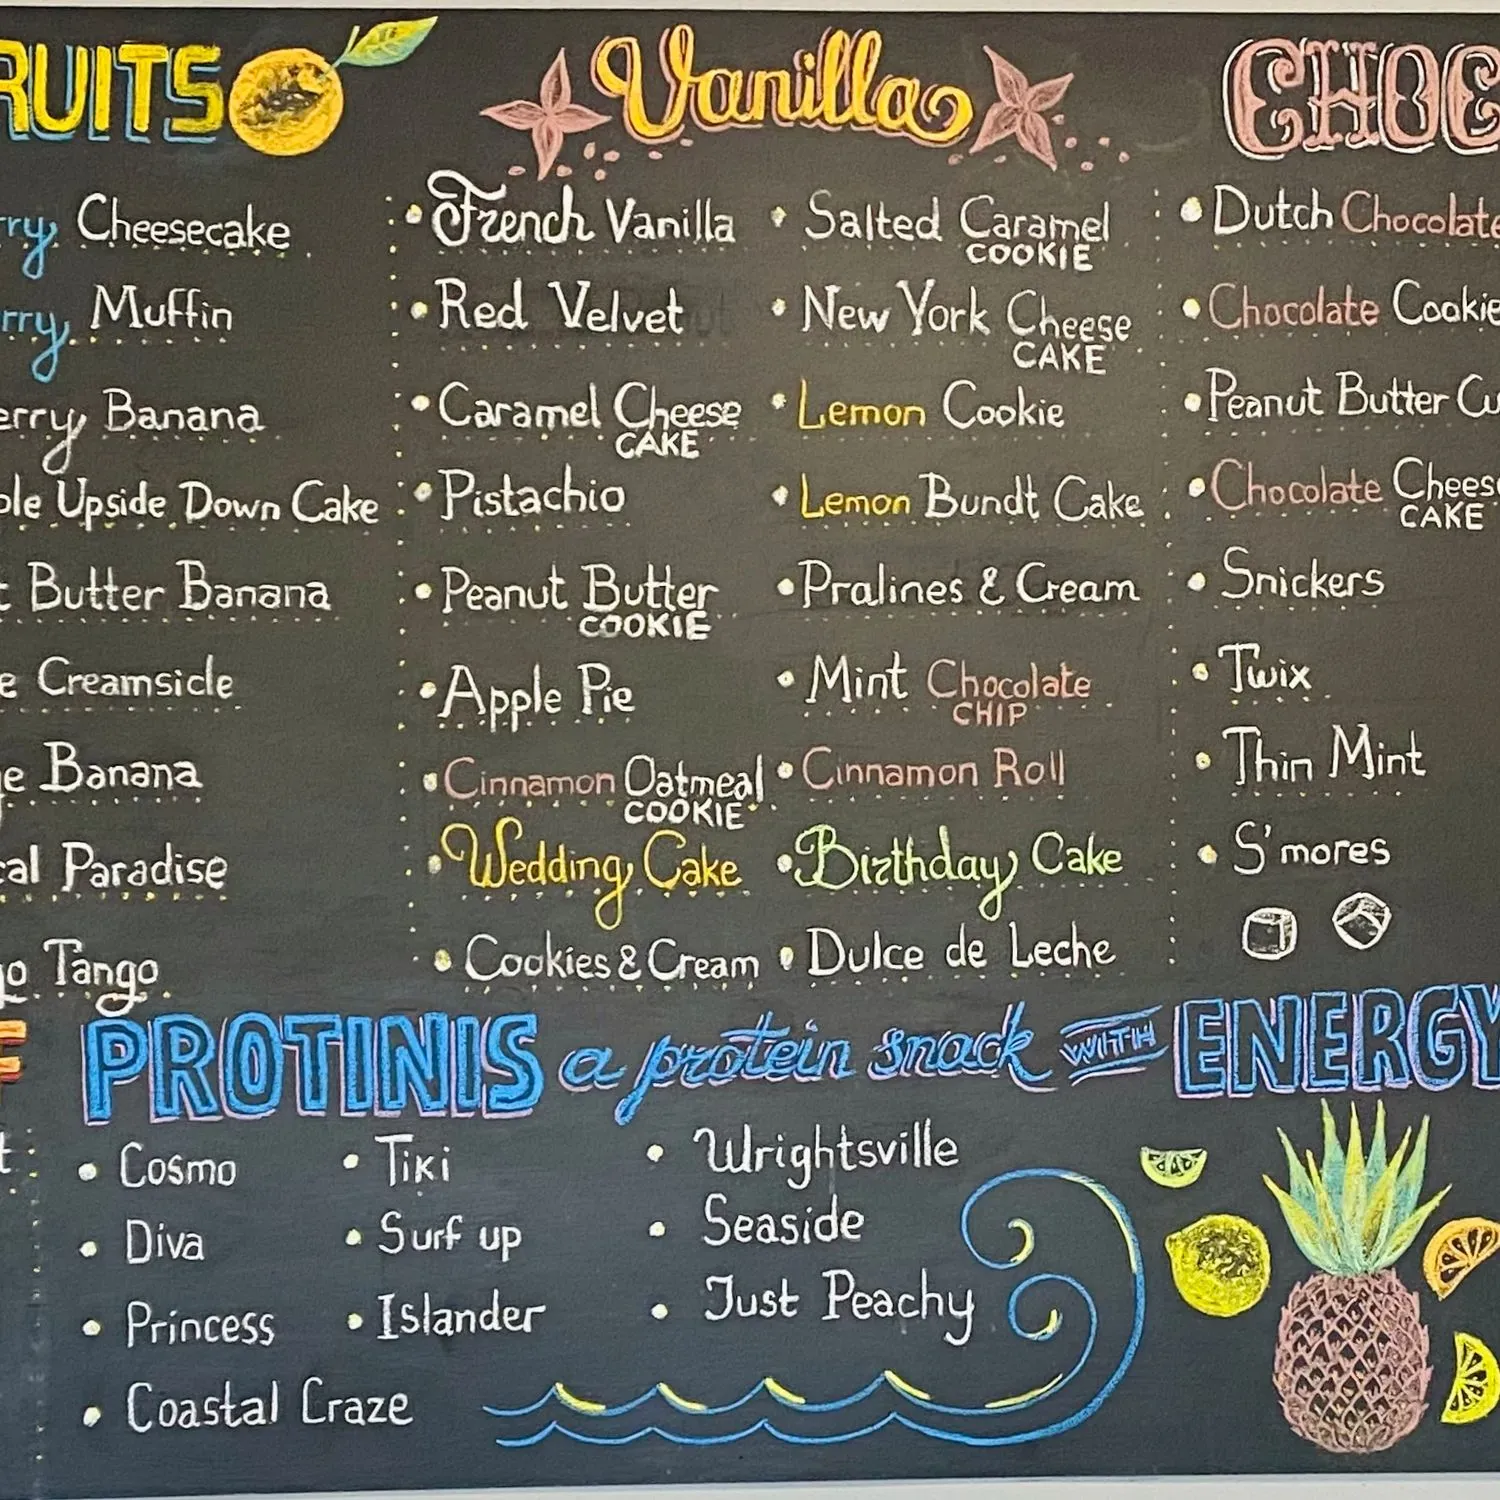 RUITS
rry Cheesecake
rry Muffin
erry Banana
ple Upside Down Cake
t Butter Banana
e Creamsicle
e Banana
cal Paradise
go Tango
Vanilla
French Vanilla
Red Velvet
Caramel Cheese
CAKE
Pistachio
Peanut Butter
COOKIE
Apple Pie
Cinnamon Oatmeal
COOKIE
Wedding Cake
Cookies & Cream
Salted Caramel
COOKIE
New York Cheese
CAKE
Lemon Cookie
Lemon Bundt Cake
Pralines & Cream
Mint Chocolate
CHIP
Cinnamon Roll
Birthday Cake
Dulce de Leche
CHOC
Dutch Chocolate
Chocolate Cookie
Peanut Butter Cu
Chocolate Cheese
CAKE
Snickers
Twix
Thin Mint
S'mores
PROTINIS a protein snack WITH ENERGY
Cosmo
Diva
Princess
Coastal Craze
Tiki
Surf up
Islander
Wrightsville
Seaside
Just Peachy